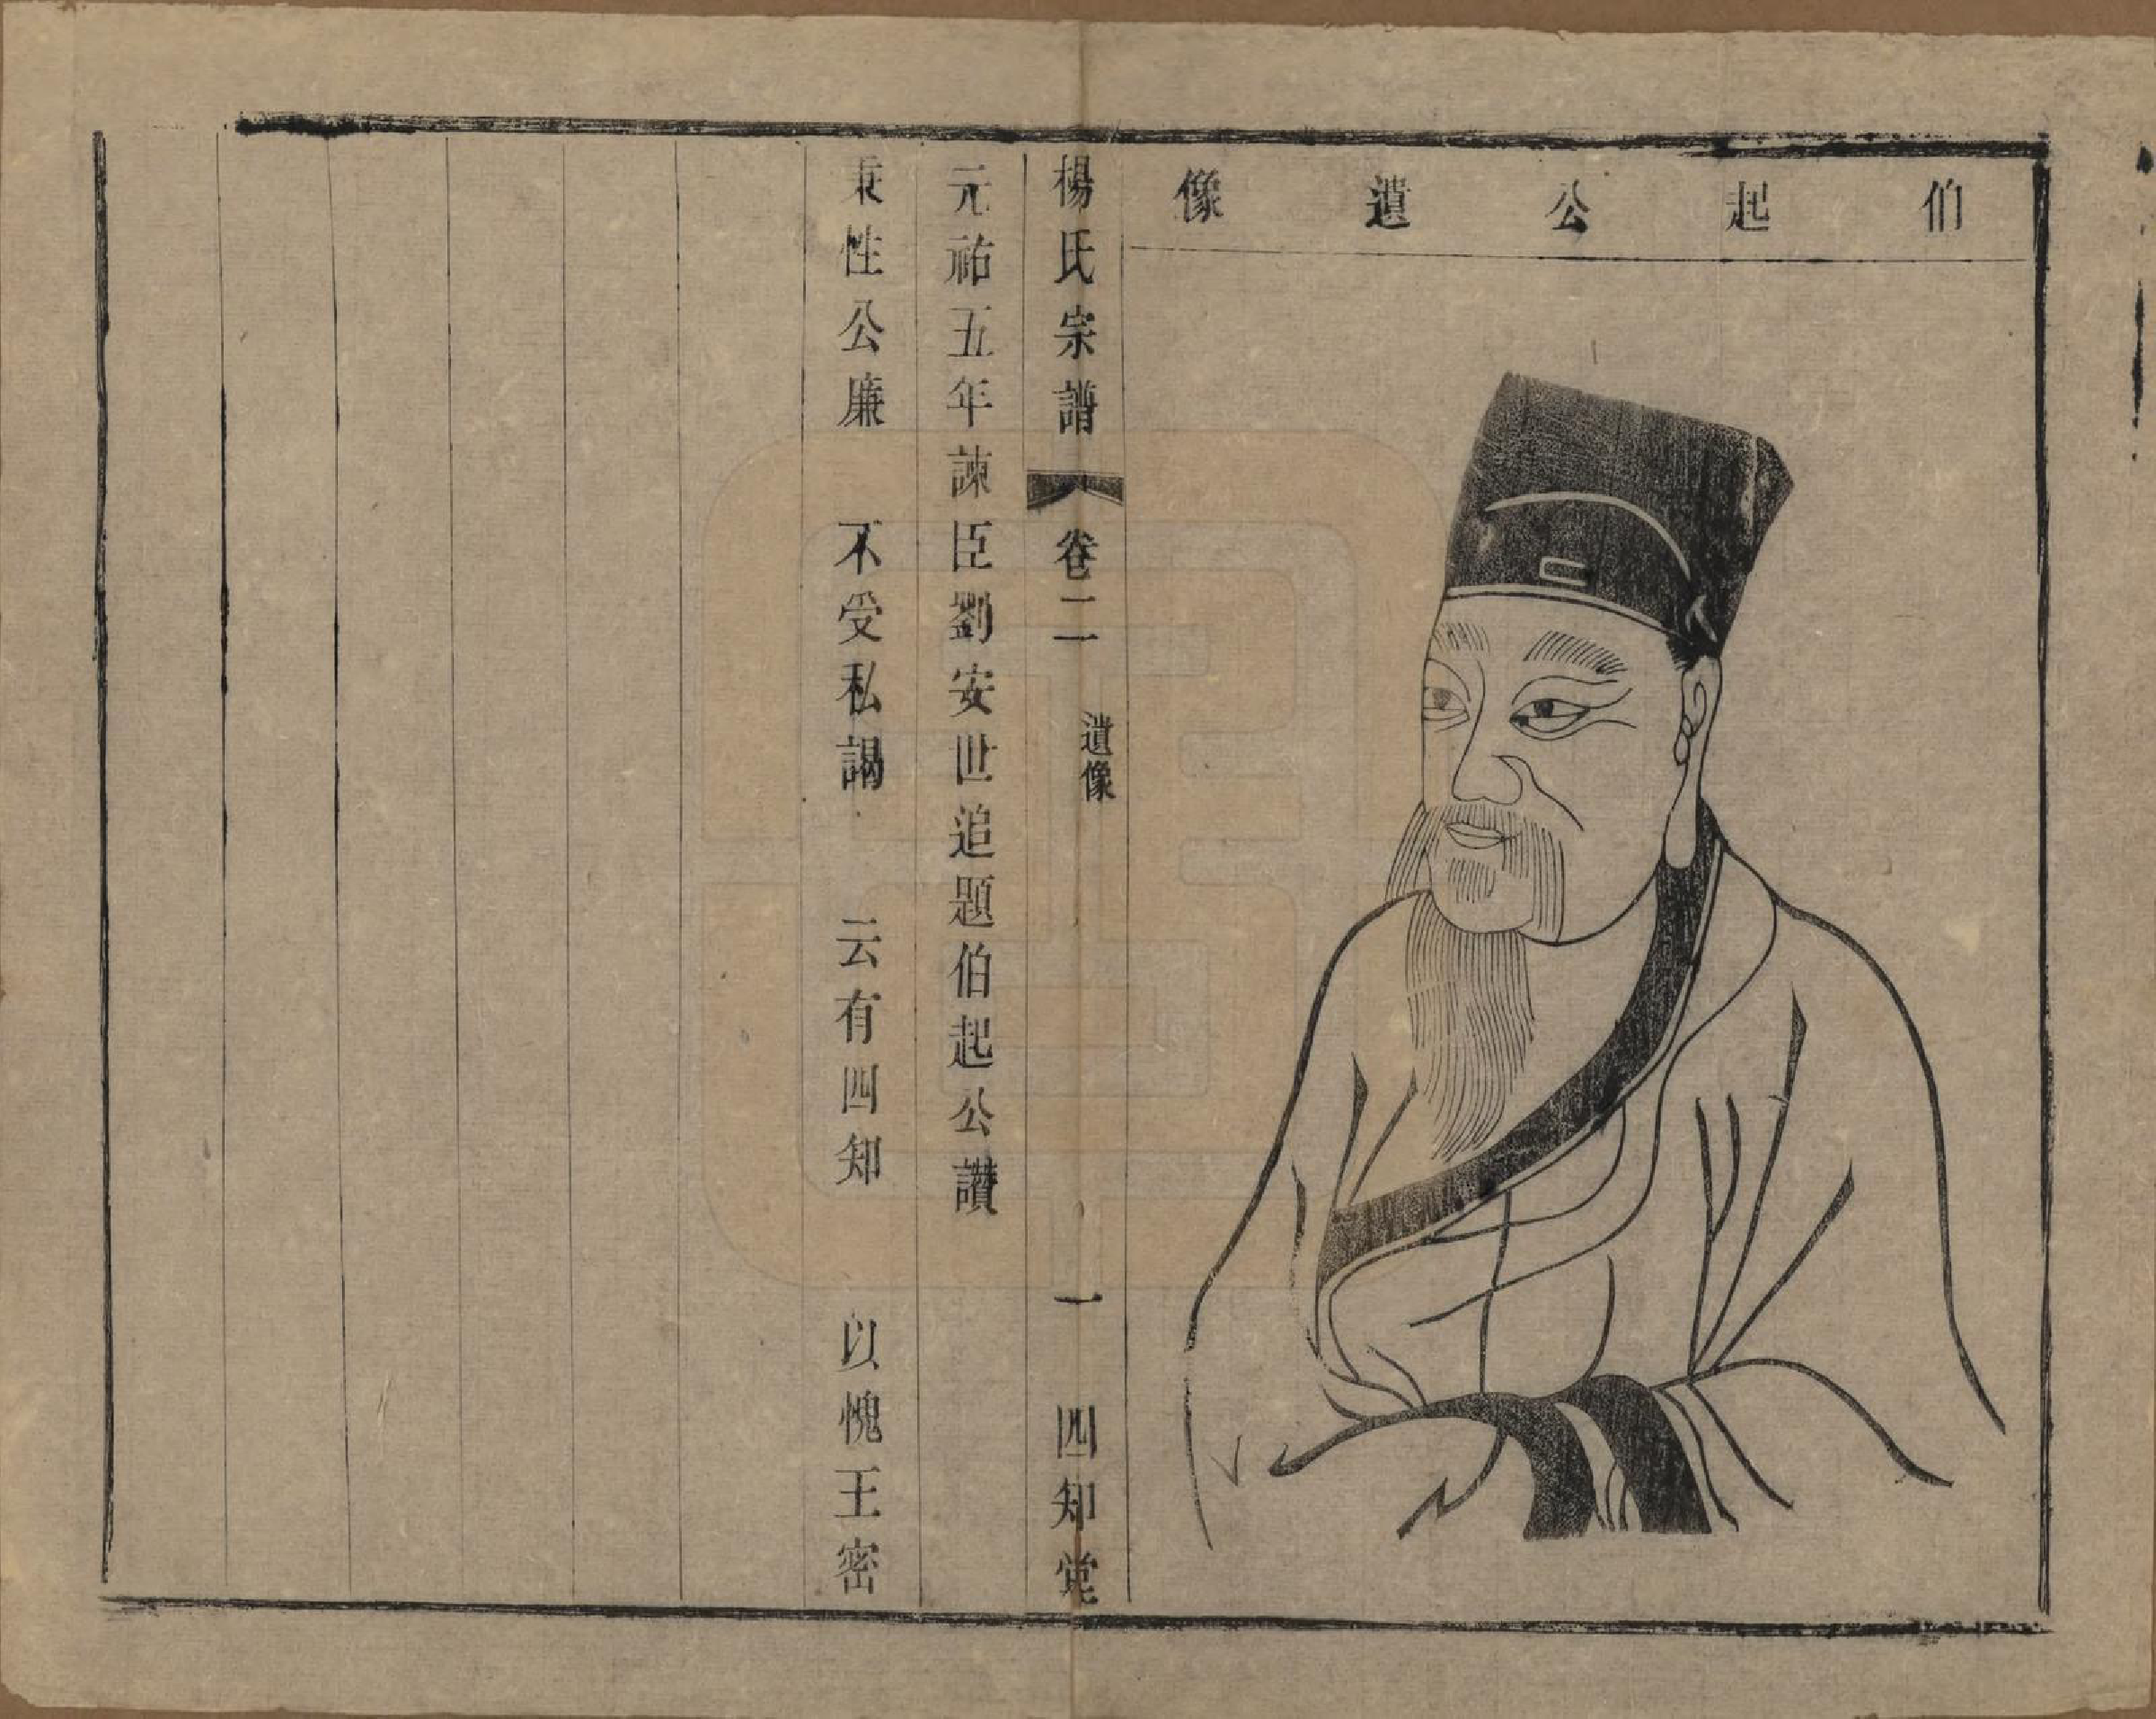 伯起公遺像
楊氏宗譜 卷二 遺像 一 四知堂
元祐五年諫臣劉安世追題伯起公讃
秉性公廉 不受私謁 云有四知 以愧王密